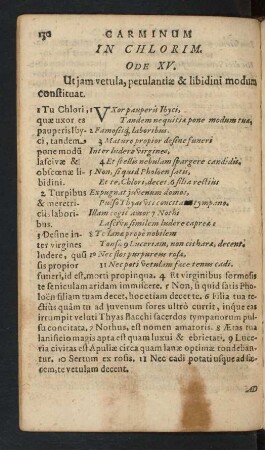 130
CARMINUM
IN CHLORIM.
ODE XV.
Ut jam vetula, petulantiæ & libidini modum
constituat.
1 Tu Chlori,
quæ uxor es
pauperis Iby-
ci, tandem
pone modũ
lascivæ &
obscœnæ li-
bidini.
2 Turpibus
& meretri-
ciis labori-
bus.
3 Desine in-
ter virgines
ludere, quũ
sis propior
1 VXor pauperis Ibyci,
Tandem nequitiæ pone modum tuæ,
2 Famosisq́; laboribus.
3 Maturo propior desine funeri
Inter ludere virgines,
4 Et stellis nebulam spargere candidis.
5 Non, si quid Pholoën satis,
Et te, Chlori, decet. 6 filia rectius
Expugnat juvenum domos,
Pulso Thyas uti concita tympano.
Illam cogit amor 7 Nothi
Lascivæ similem ludere capreæ:
8 Te lanæ prope nobilem
Tonsæ 9 Luceriam, non citharæ, decent,
10 Nec flos purpureus rosæ,
11 Nec poti vetulam fæce tenus cadi.
funeri, id est, morti propinqua. 4 Et virginibus formosis
te seniculam aridam immiscere. 5 Non, si quid satis Pho-
loën filiam tuam decet, hoc etiam decet te. 6 Filia tua re-
ctiùs quàm tu ad juvenum fores ultrò currit, inque eas
irrumpit veluti Thyas Bacchi sacerdos tympanorum pul-
su concitata. 7 Nothus, est nomen amatoris. 8 Ætas tua
lanificio magis apta est quam luxui & ebrietati. 9 Luce-
ria civitas est Apuliæ circa quam lanæ optimæ tondeban-
tur. 10 Sertum ex rosis. 11 Nec cadi potati usque ad fæ-
cem, te vetulam decent.
AD